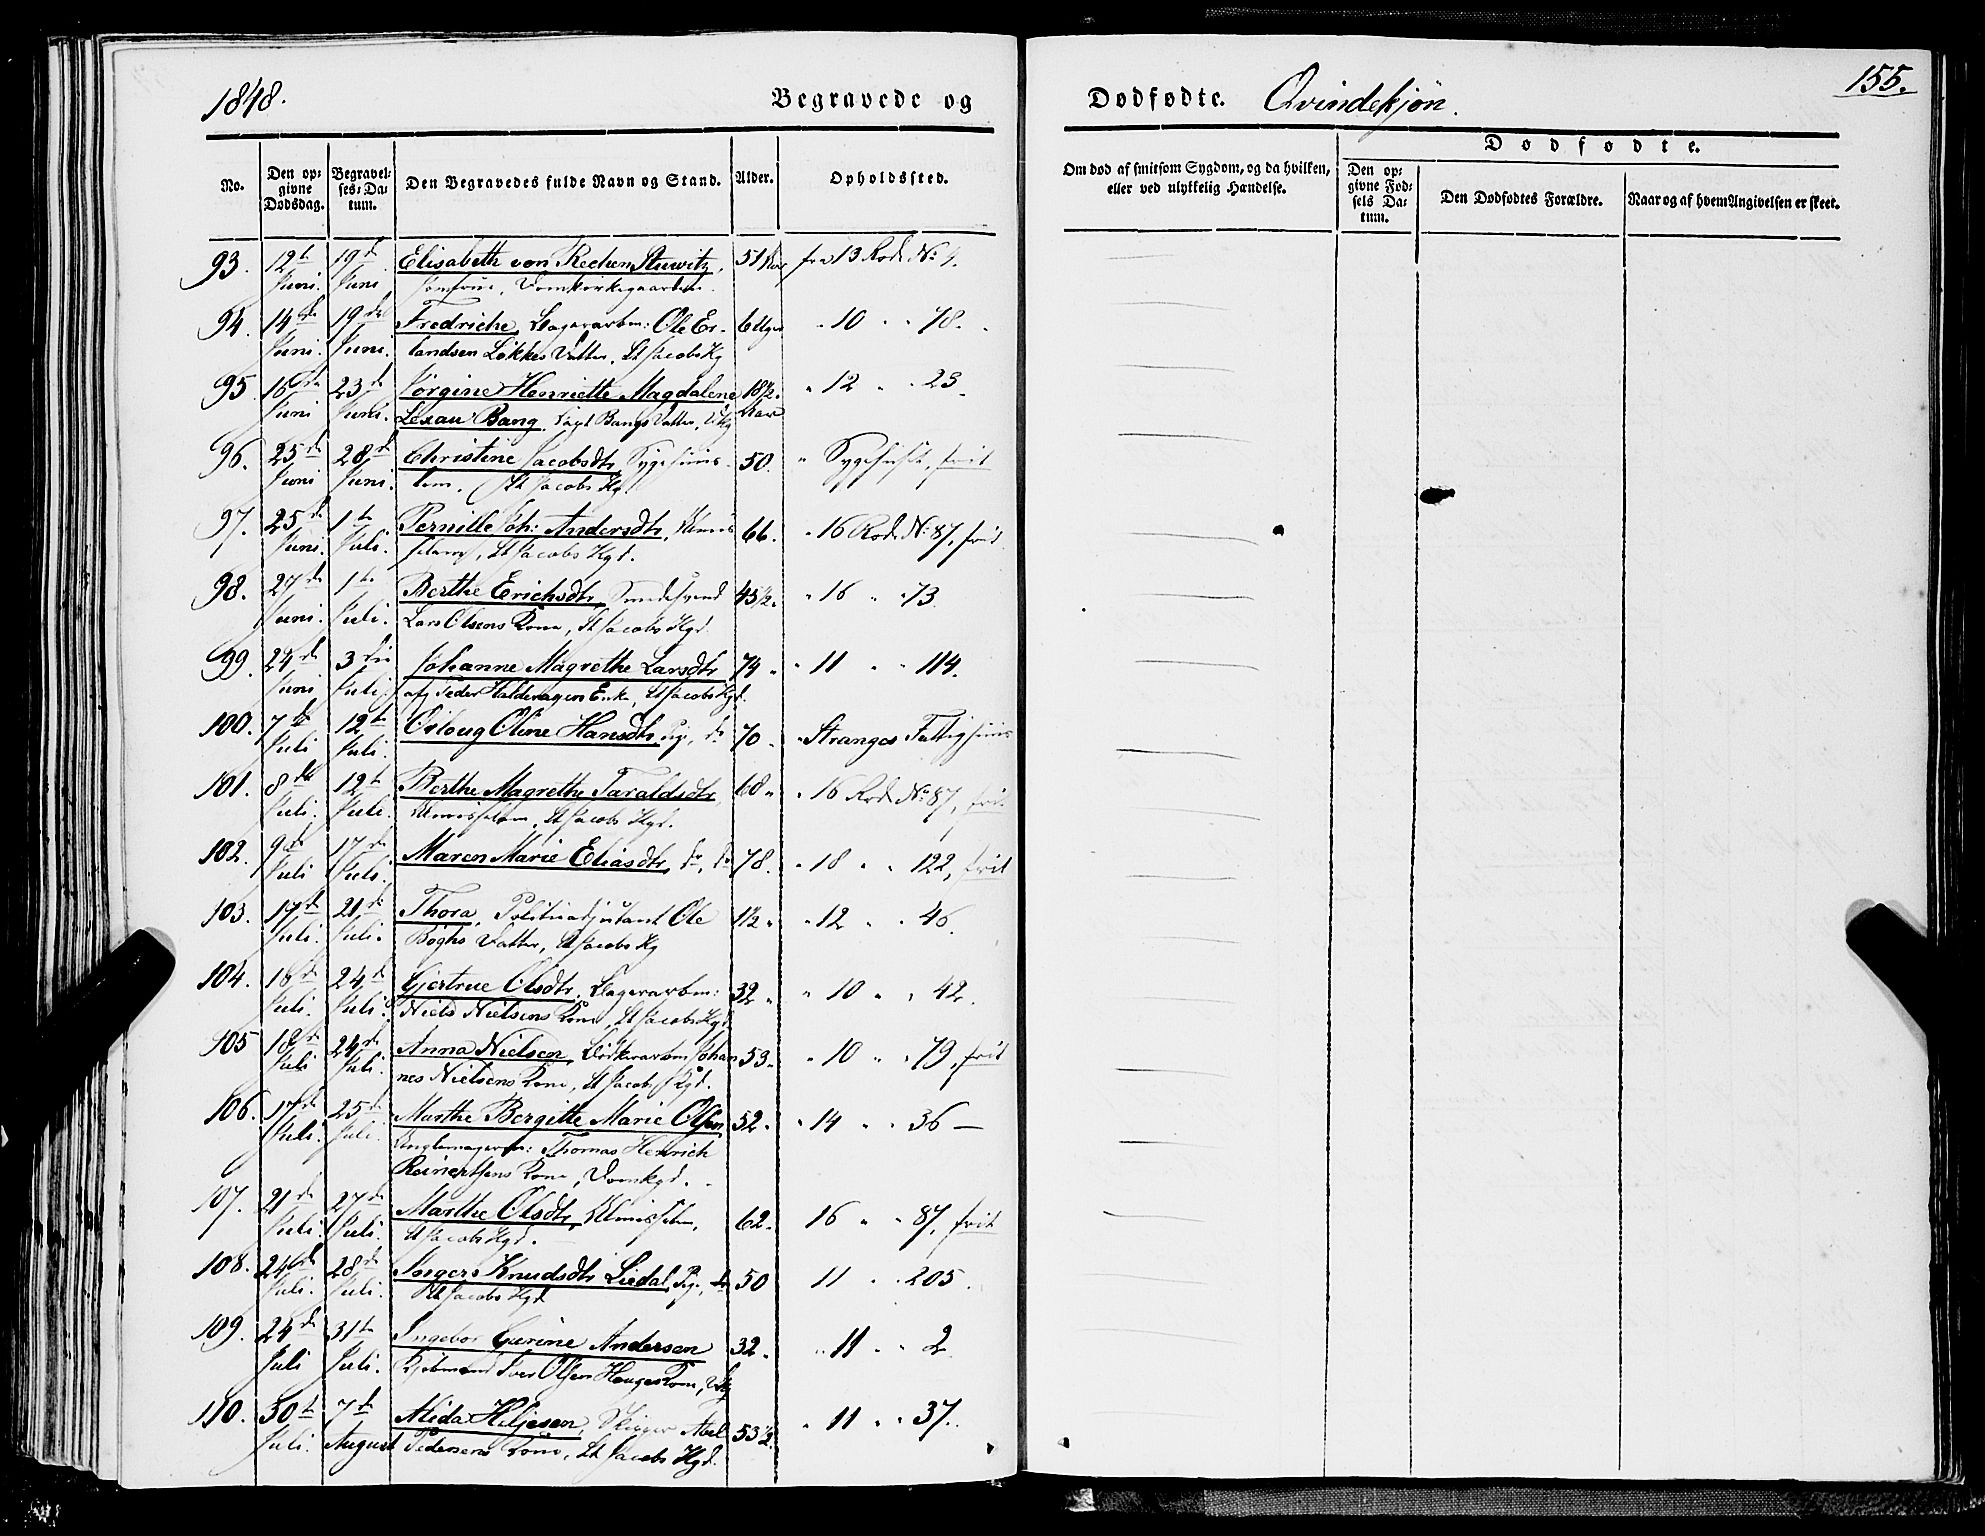 1848.
Begravede og
Dødfødte. Qvindekjøn.
155.
No.
Den op-
givne
Dødsdag.
Begravel-
ses-Da-
tum.
Den Begravedes fulde Navn og Stand.
Alder.
Opholdssted.
Om død af smitsom Sygdom, og da hvilken,
eller ved ulykkelig Hændelse.
Dødfødte.
Den op-
givne Fød-
sels Da-
tum.
Den Dødfødtes Forældre.
Naar og af hvem Angivelsen er skeet.
93. 12te 19de Elisabeth von Rechen Stuwitz, 51 13 Rode No
Juni. Juni Jomfrue, Domkirkegaarden.
94. 14de 19de Fredriche, Ole Er- 6 Uger " 10 " " 78.
Juni. Juni. landsen Løkkes Datter, St Jacobs Kg
95. 16de 23de Jørgine Henriette Magdalene 18½ " 12 " " 23
Juni Juni. Lexau Bang. Bangs Datter,
96. 25de 28de Christine Jacobsdtr, Sygehuus- 50. " Sygehuset, frit
Juni Juni. lem, St Jacobs Kg.
97. 25de 1te Pernille Joh: Andersdtr, Almis 66. " 16 Rode No 87, frit
Juni. Juli. St Jacobs Kgd.
98. 27de 1te Berthe Erichsdtr, Smedesvend 43½ " 16 " " 73.
Juni. Juli. Lars Olsens Kone, St Jacobs Kgd.
99. 24de 3die Johanne Magrethe Larsdtr 74 " " 11 " " 114.
Juni Juli afg Peder Haldevagers Enke, St Jacobs Kgd.
100. 7de 12te Osloug Oline Hansdtr, Pige, do 70 " " Stranges Fattighuus
Juli Juli.
101. 8de 12te Berthe Magrethe Taraldsdtr, 60 " " 16 Rode No 87, frit
Juli. Juli. Almisselem, St Jacobs Kgd.
102. 9de 17de Maren Marie Eliasdtr, do, do 78. " 18 " " 122, frit
Juli Juli.
103. 17de 21de Thora, Politiadjutant Ole 1½ " " 12 " " 46.
Juli. Juli. Bøghs Datter, St Jacobs Kg
104. 18de 24de Gjertrue Olsdtr, 32 " " 10 " " 42.
Juli. Juli. Niels Nielsens Kone, St Jacobs Kgd
105 18de 24de Anna Nielsen, Johan 53. " 10 " " 79, frit
Juli Juli. nes Nielsens Kone, St Jacobs Kgd.
106. 17de 25de Marthe Bergitte Marie Olsen 52. " 14 " " 36 —
Juli. Juli. Thomas Henrich
Reinertsens Kone, Domkgd.
107. 21de 27de Marthe Olsdtr, Almisselem, 62. 16 " " 87, frit
Juli. Juli. St Jacobs Kgd.
108. 24de 28de Knudsdtr Liedal, Pige, 50 11 " " 205.
Juli. Juli. St Jacobs Kgd
109. 25de 31te Ingebor Gurine Andersen 32. " 11 " " 2
Juli Juli. Kjøbmand Iver Olsen Hauges Kone,
110. 30te 7de Alida Hiljesen, Skipper Abel 53½ " 11 " " 37.
Juli. August Pedersens Kone, St Jacobs Kgd.